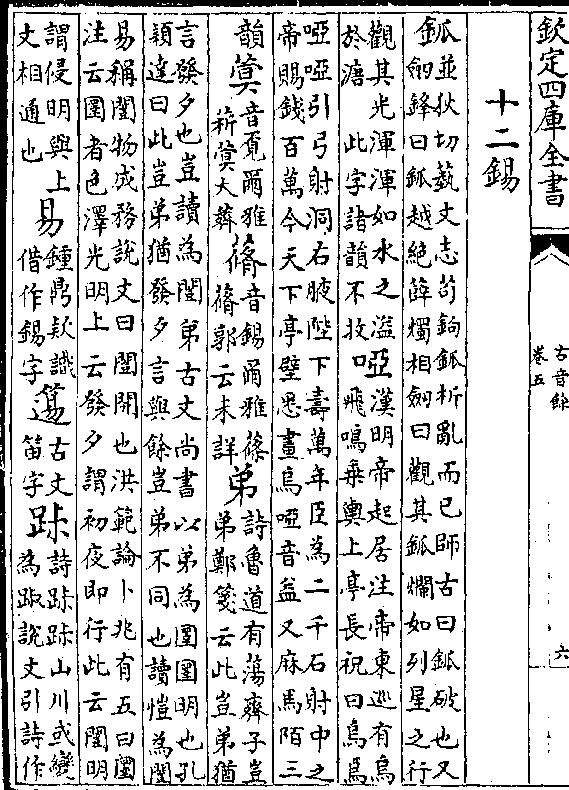 欽定四庫全書
古音餘
卷五
六
十二錫
釽並狄切藝文志茍鉤釽析亂而已師古曰釽破也又
劒鋒曰釽越絶薛燭相劒曰觀其釽爛如列星之行
觀其光渾渾如水之溢
於溏此字諸韻不收
啞漢明帝起居注帝東巡有烏
飛鳴乗輿上亭長祝曰烏烏
啞啞引弓射洞右腋陛下壽萬年臣為二千石射中之
帝賜錢百萬今天下亭壁悉畫烏啞音益又麻馬陌三
韻
蓂音覓爾雅
菥蓂大薺
蓨音錫爾雅蓨
蓨郭云未詳
弟詩魯道有蕩齊子豈
弟鄭箋云此豈弟猶
言發夕也豈讀為闓弟古文尚書以弟為圛圛明也孔
穎達曰此豈弟猶發夕言與餘豈弟不同也讀愷為闓
易稱闓物成務說文曰闓開也洪範論卜兆有五曰圛
注云圛者色澤光明上云發夕謂初夜即行此云闓明
謂侵明與上
文相通也
易鍾鼎欵識
借作錫字
古文
笛字
跊詩跊跊山川或變
為踧說文引詩作